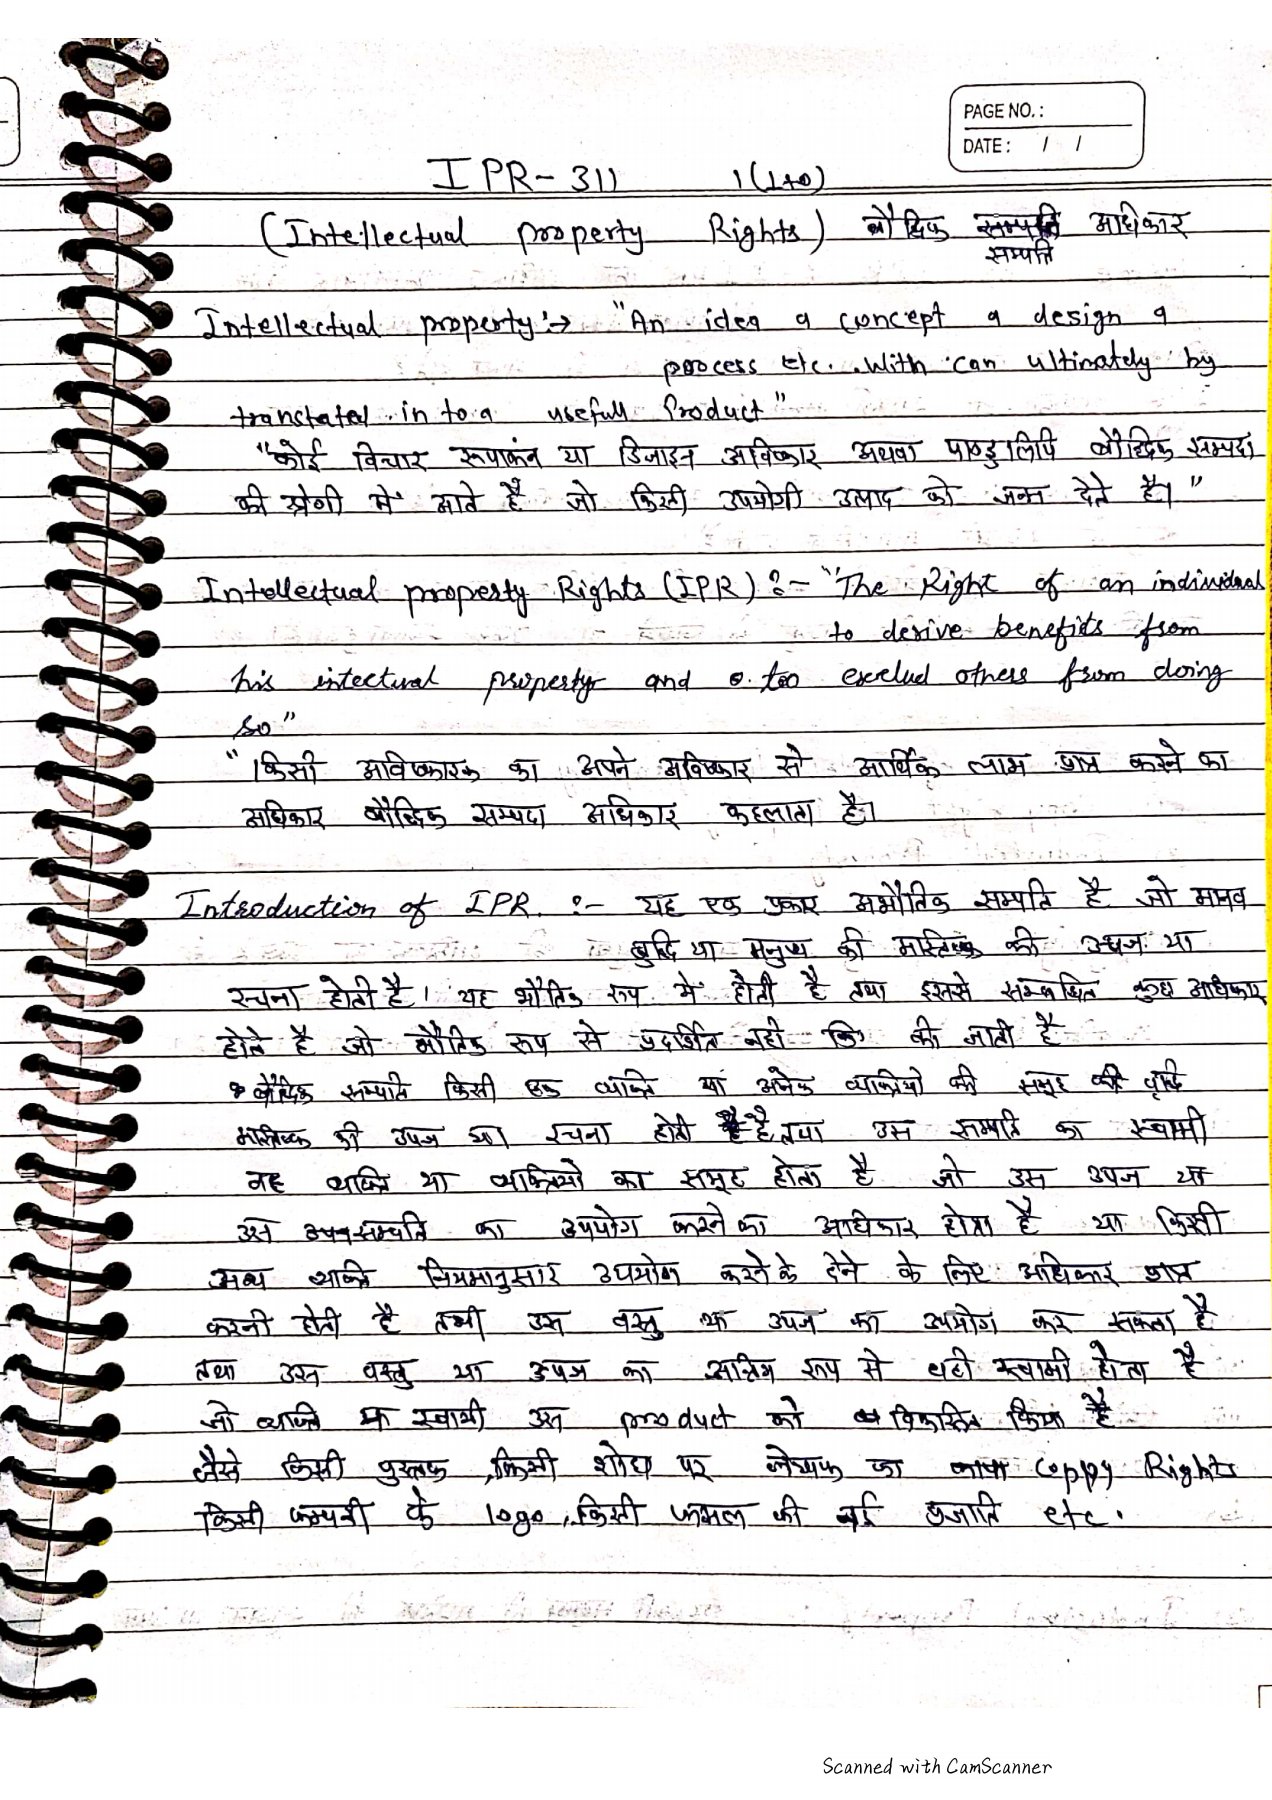 PAGE NO.:
DATE: / /
IPR-311 1(1+0)
(Intellectual property Rights) बौद्धिक सम्पत्ति अधिकार
सम्पति
Intellectual property:→ "An idea a concept a design a
process etc. With can ultimately by
translated in to a usefull Product"
"कोई विचार रूपाकंन या डिजाइन अविष्कार अथवा पाण्डुलिपि बौद्धिक सम्पदा
की श्रेणी में आते हैं जो किसी उपयोगी उत्पाद को जन्म देते है।"
Intellectual property Rights (IPR):- "The Right of an individual
to derive benefits from
his intectual property and too exclud others from doing
so"
"किसी आविष्कारक का अपने अविष्कार से आर्थिक लाभ प्राप्त करने का
अधिकार बौद्धिक सम्पदा अधिकार कहलाता है।
Introduction of IPR. :- यह एक प्रकार अभौतिक सम्पति है जो मानव
बुद्धि या मनुष्य की मस्तिष्क की उपज या
रचना होती है। यह भौतिक रूप में होती है तथा इससे सम्बन्धित कुछ अधिकार
होते है जो भौतिक रूप से प्रदर्शित नही की जाती है
बौद्धिक सम्पति किसी एक व्यक्ति या अनेक व्यक्तियो की समूह की
मस्तिष्क की उपज या रचना होती है तथा उस सम्पति का स्वामी
वह व्यक्ति या व्यक्तियो का समूह होता है जो उस उपज या
उस सम्पति का उपयोग करने का अधिकार होता है या किसी
अन्य व्यक्ति नियमानुसार उपयोग करने के देने के लिए अधिकार प्राप्त
करनी होती है तभी उस वस्तु या उपज का उपयोग कर सकता है
तथा उस वस्तु या उपज का रूप से वही स्वामी होता है
जो व्यक्ति या स्वामी उस product को विकसित किया है
जैसे किसी पुस्तक, किसी शोध पर लेखक का Coppy Rights
किसी कम्पनी के logo, किसी फसल की नई प्रजाति etc.
Scanned with CamScanner